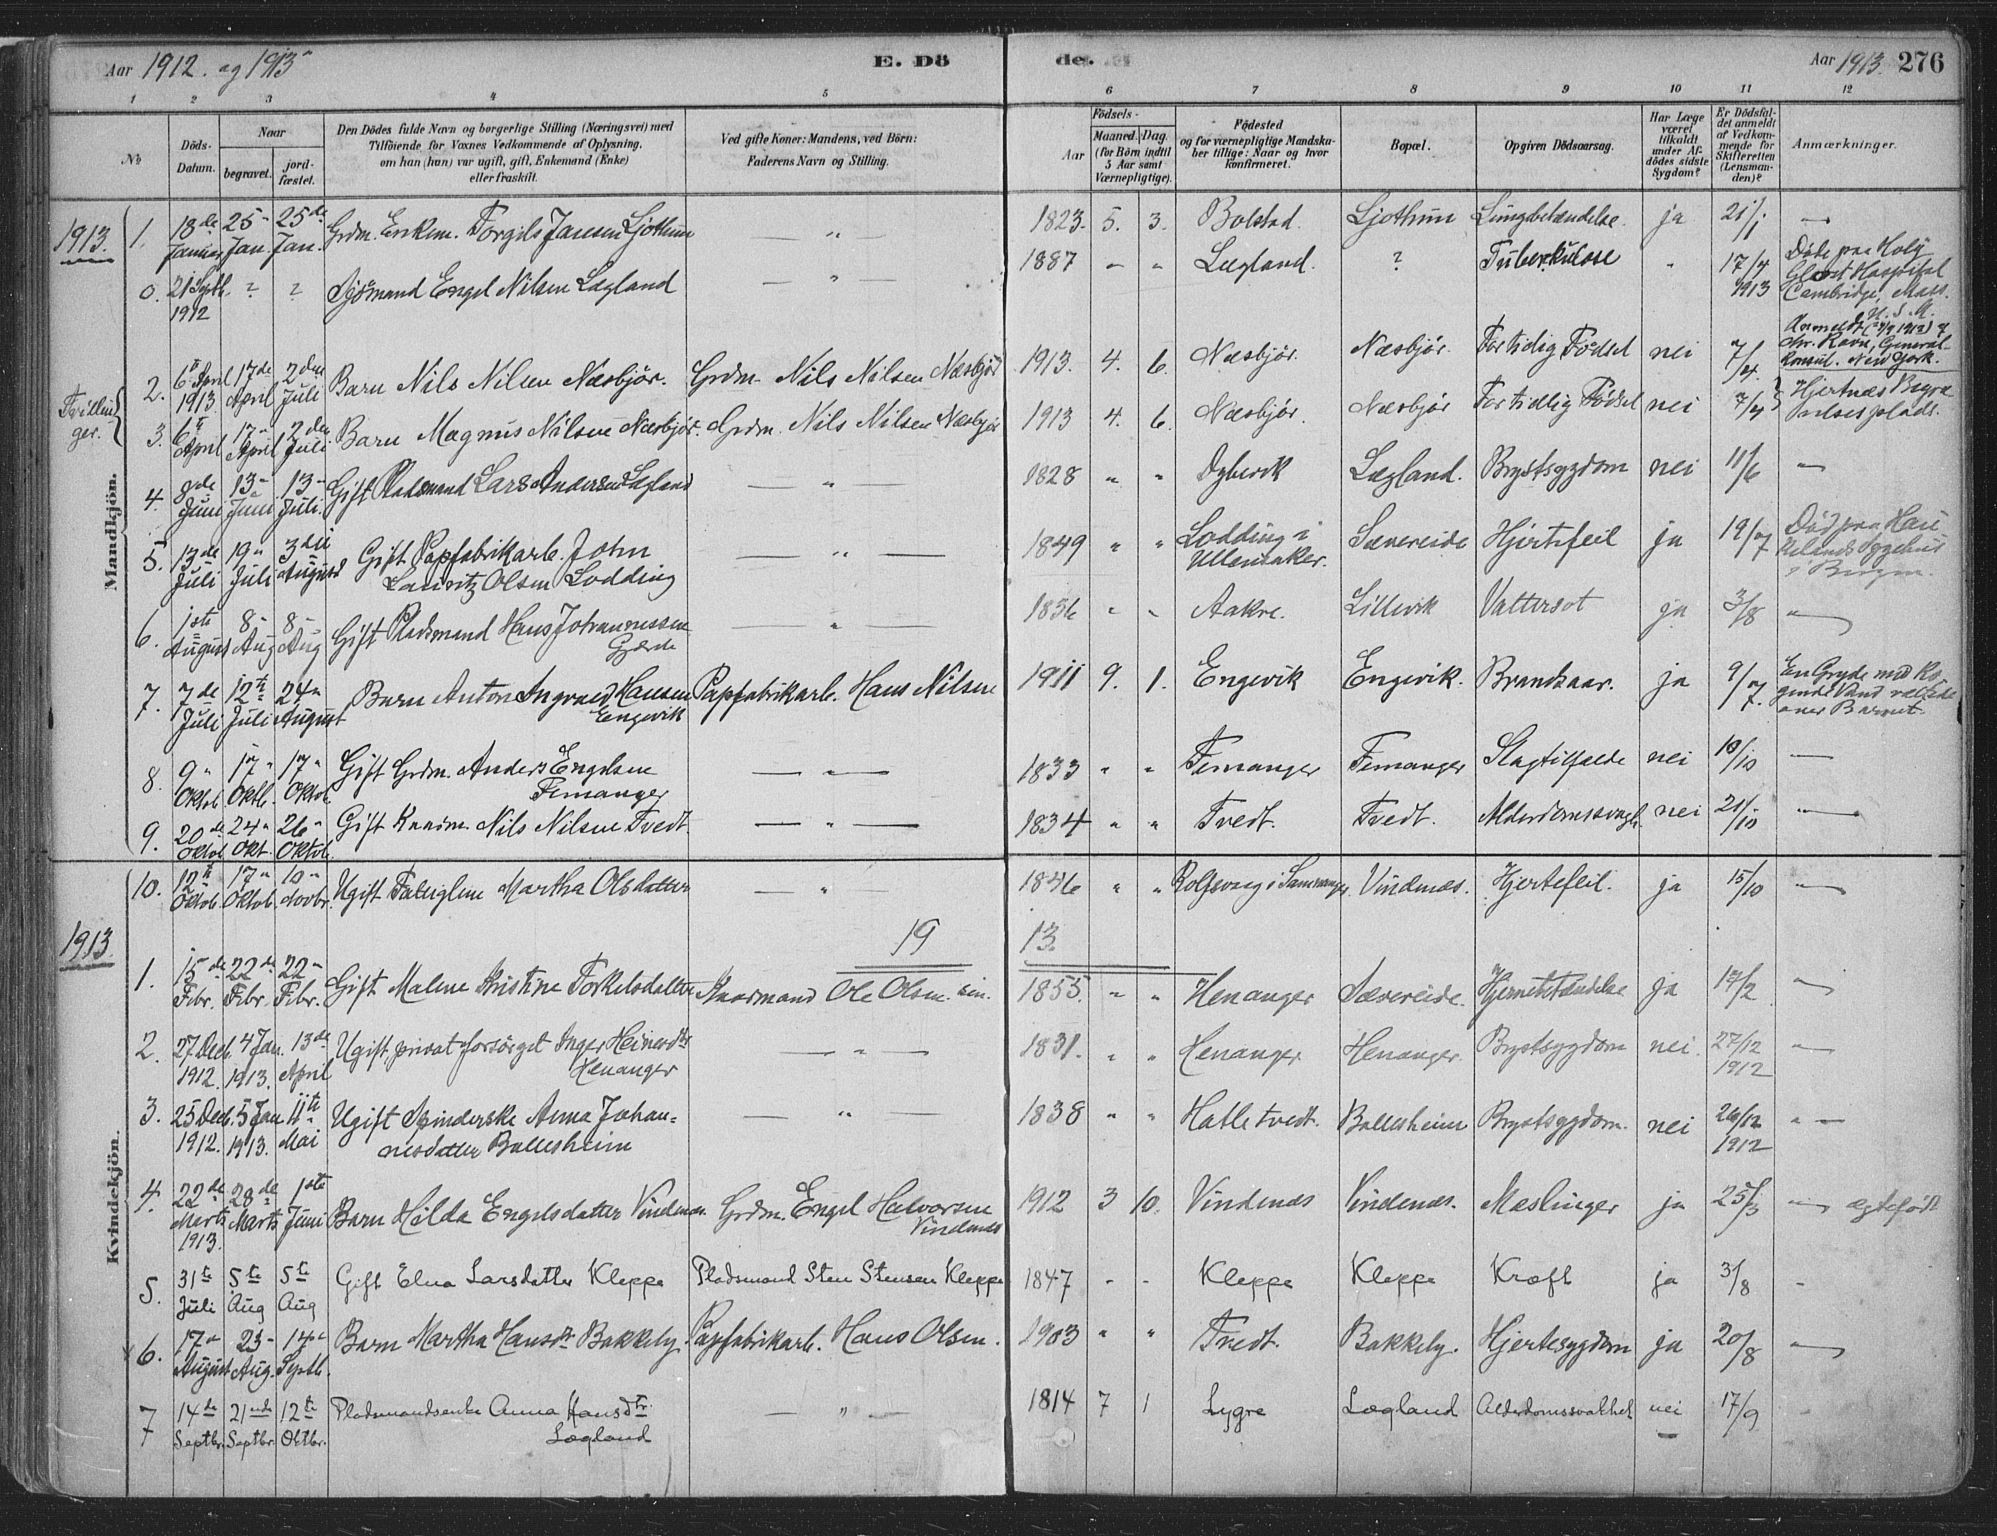 Aar 1912. og 1913
E. Dö
de.
Aar 1913. 276
1 2 3 4 5 6 7 8 9 10 11 12
No
Döds-Datum.
Naar
begravet.
jord-fæstet.
Den Dödes fulde Navn og borgerlige Stilling (Næringsvei) med
Tilföiende for Voxnes Vedkommende af Oplysning,
om han (hun) var ugift, gift, Enkemand (Enke)
eller fraskilt.
Ved gifte Koner: Mandens, ved Börn:
Faderens Navn og Stilling.
Födsels-
Aar
Maaned. Dag.
(for Börn indtil
5 Aar samt
Værnepligtige).
Födested
og for værnepligtige Mandska-
ber tillige: Naar og hvor
konfirmeret.
Bopæl.
Opgiven Dödsaarsag.
Har Læge
været
tilkaldt
under Af-
dödes sidste
Sygdom?
Er Dödsfal-
det anmeldt
af Vedkom-
mende for
Skifteretten
(Lensman-
den)?
Anmærkninger.
Mandkjön.
1913. 1. 18de Januar 25 Jan. 25de Jan. Grdm. Enkem. Torgils Jansen Ljothun — " — 1823. 5. 3. Bolstad. Ljothun Lungebetændelse. ja 21/1 —
0. 21 Septb. 1912 ? ? Sjömand Engel Nilsen Lægland — " — 1887 - " Lægland. ? Tuberkulose " 17/4 1913 Döde paa Holy
Ghost Hospital
Cambridge, Mass.
U.S.A.
Anmeldt ( 1912) af
Chr. Ravn, General-
konsul. New York.
Tvillin-
ger.
2. 6te April 1913. 17de April 2den Juli Barn Nils Nilsen Næsbjör. Grdm. Nils Nilsen Næsbjör 1913. 4. 6. Næsbjör. Næsbjör. For tidlig Födsel nei 7/4.
3. 6te April 17 April 2den Juli Barn Magnus Nilsen Næsbjör. Grdm. Nils Nilsen Næsbjör 1913 4. 6. Næsbjör. Næsbjör For tidlig Födsel nei 7/4 Hjertnæs Begra
velsesplads.
4. 8de Juni 13 Juni 13 Juli. Gift Pladsmand Lars Andersen Lægland — " — 1828 " " Dybevik Lægland. Brystsygdom nei 11/6 —
5. 13de Juli 19 Juli 3die August Gift Papfabrikarb. John
Lauritz Olsen Lodding — " — 1849 " " Lodding i
Ullensaker. Sævereide Hjertefeil ja 19/7 Död paa Hau
kelands Sygehus
i Bergen.
6. 1ste August 8 Aug 8 Aug Gift Pladsmand Hans Johannessen
Gjærde — " — 1856 " " Aakre. Lillevik Vattersot ja 3/8 "
7. 7de Juli 12te Juli 24 August Barn Anton Ingvald Hansen
Engevik Papfabrikarb. Hans Nilsen 1911 9. 1. Engevik Engevik. Brandsaar. ja 9/7. En Gryde med Ko
gende Vand væltede
over Barnet.
8. 9 Oktob. 17 Oktb. 17 Oktob. Gift Grdm. Anders Engelsen
Femanger — " — 1833 " " Femanger Femanger Slagtilfælde nei 10/10 —
9. 20de Oktob. 24 Okt. 26 Oktob. Gift Kaarm. Nils Nilsen Tvedt. — " — 1834 " " Tvedt. Tvedt. nei 21/10 "
10. 12te Oktob. 17 Oktob. 10 Novbr. Ugift Fattiglem Martha Olsdatter — " — 1846 " " Rolfsvaag i Samnanger Vindenæs. Hjertefeil. ja 15/10 "
19 13.
Kvindekjön.
1913. 1. 15de Febr. 22de Febr. 22 Febr. Gift Malene Kristine Torkelsdatter Kaarmand Ole Olsen. 1855. " " Henanger Sævereide. Hjernebetændelse ja 17/2 "
2. 27 Decb. 1912. 4 Jan. 1913. 13de April Ugift, privat forsörget Inger Heinesdtr
Henanger — " — 1831. " " Henanger Henanger. Brystsygdom nei. 27/12 1912 "
3. 25 Decb. 1912. 5 Jan 1913. 11te Mai Ugift Spinderske Anna Johan-
nesdatter Ballesheim — " — 1838 " " Hatletvedt. Ballesheim Brystsygdom. nei 26/12 1912 " —
4. 22de Marts 1913. 28de Marts 1ste Juni Barn Hilda Engelsdatter Vindenæs. Grdm. Engel Halvorsen
Vindenæs 1912 3 10. Vindenæs Vindenæs. Mæslinger ja 25/3 — ægtefödt
5. 31te Juli 5te Aug 5te Aug Gift Elna Larsdatter Kleppe Pladsmand Sten Stensen Kleppe 1847 - - Kleppe Kleppe Kræft ja 3/8 -
6. 17 August 23 Aug. 14 Septb. Barn Martha Hansdtr Bakkely. Papfabrikarb. Hans Olsen. 1903 " " Tvedt. Bakkely. Hjertesygdom ja 20/8 "
7 14de Septbr. 21nde Septbr. 12te Oktbr. Pladsmandsenke Anna Hansdtr.
Lægland — " — 1814 7 1 Lygre Lægland Alderdomssvakhet nei 17/9 -